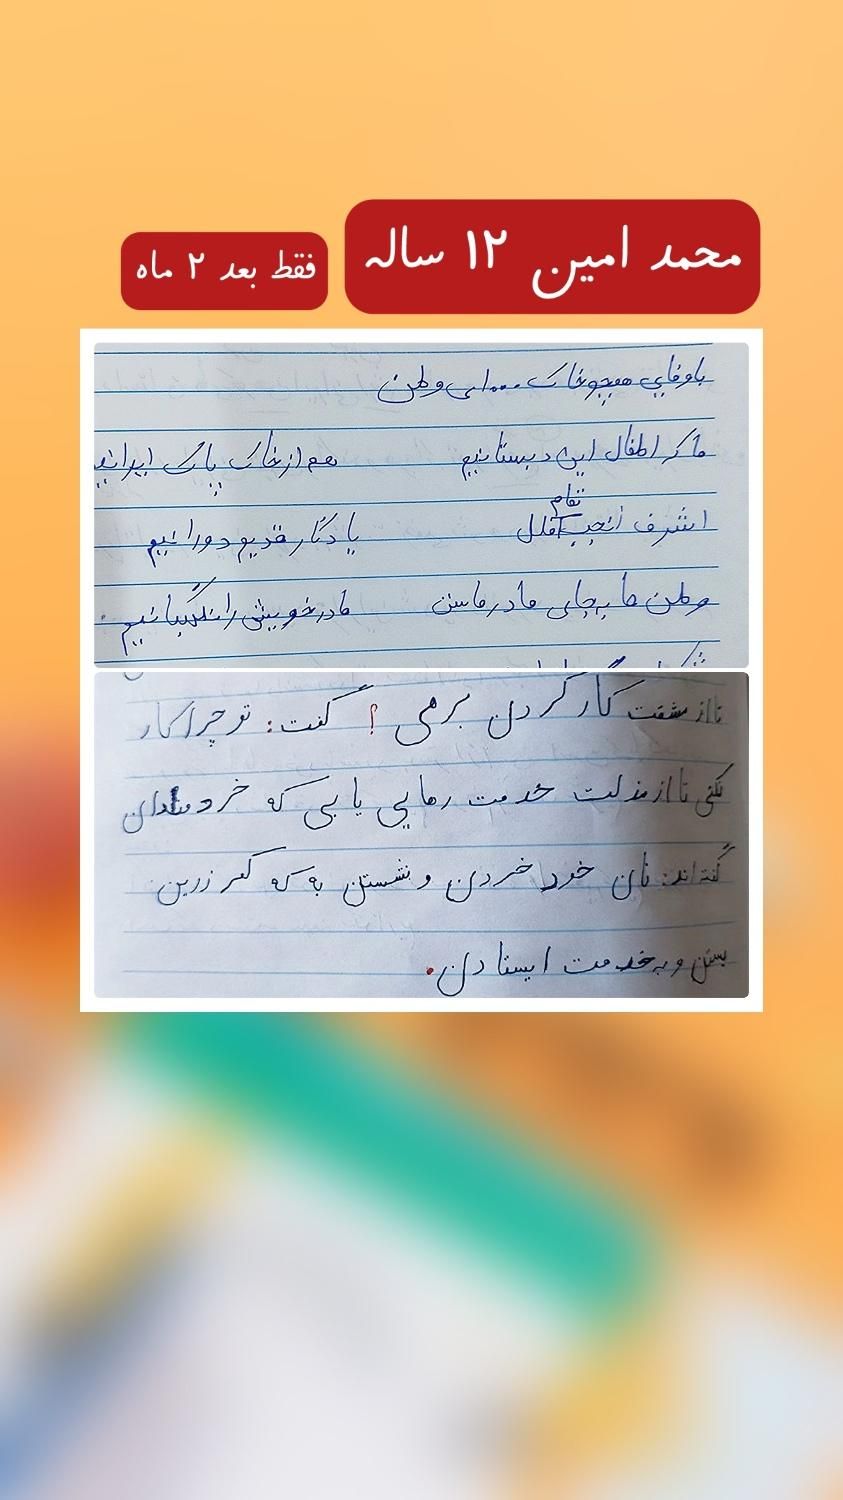 محمد امین ۱۲ ساله
فقط بعد ۲ ماه
باوفایی همچو خاک ... ای وطن
ما که اطفال این دبستانیم هم از خاک پاک ایرانیم
تمام
اشرف انجب قلل یادگار قدیم دورانیم
وطن ما بجای مادر ماست مادر خویش را نگهبانیم
تا از مشقت کار کردن برهی ؟ گفت: تو چرا کار
نکنی تا از مذلت خدمت رهایی یابی که خردمندان
گفته‌اند: نان خود خردن و نشستن به که کمر زرین
بستن و به خدمت ایستادن.